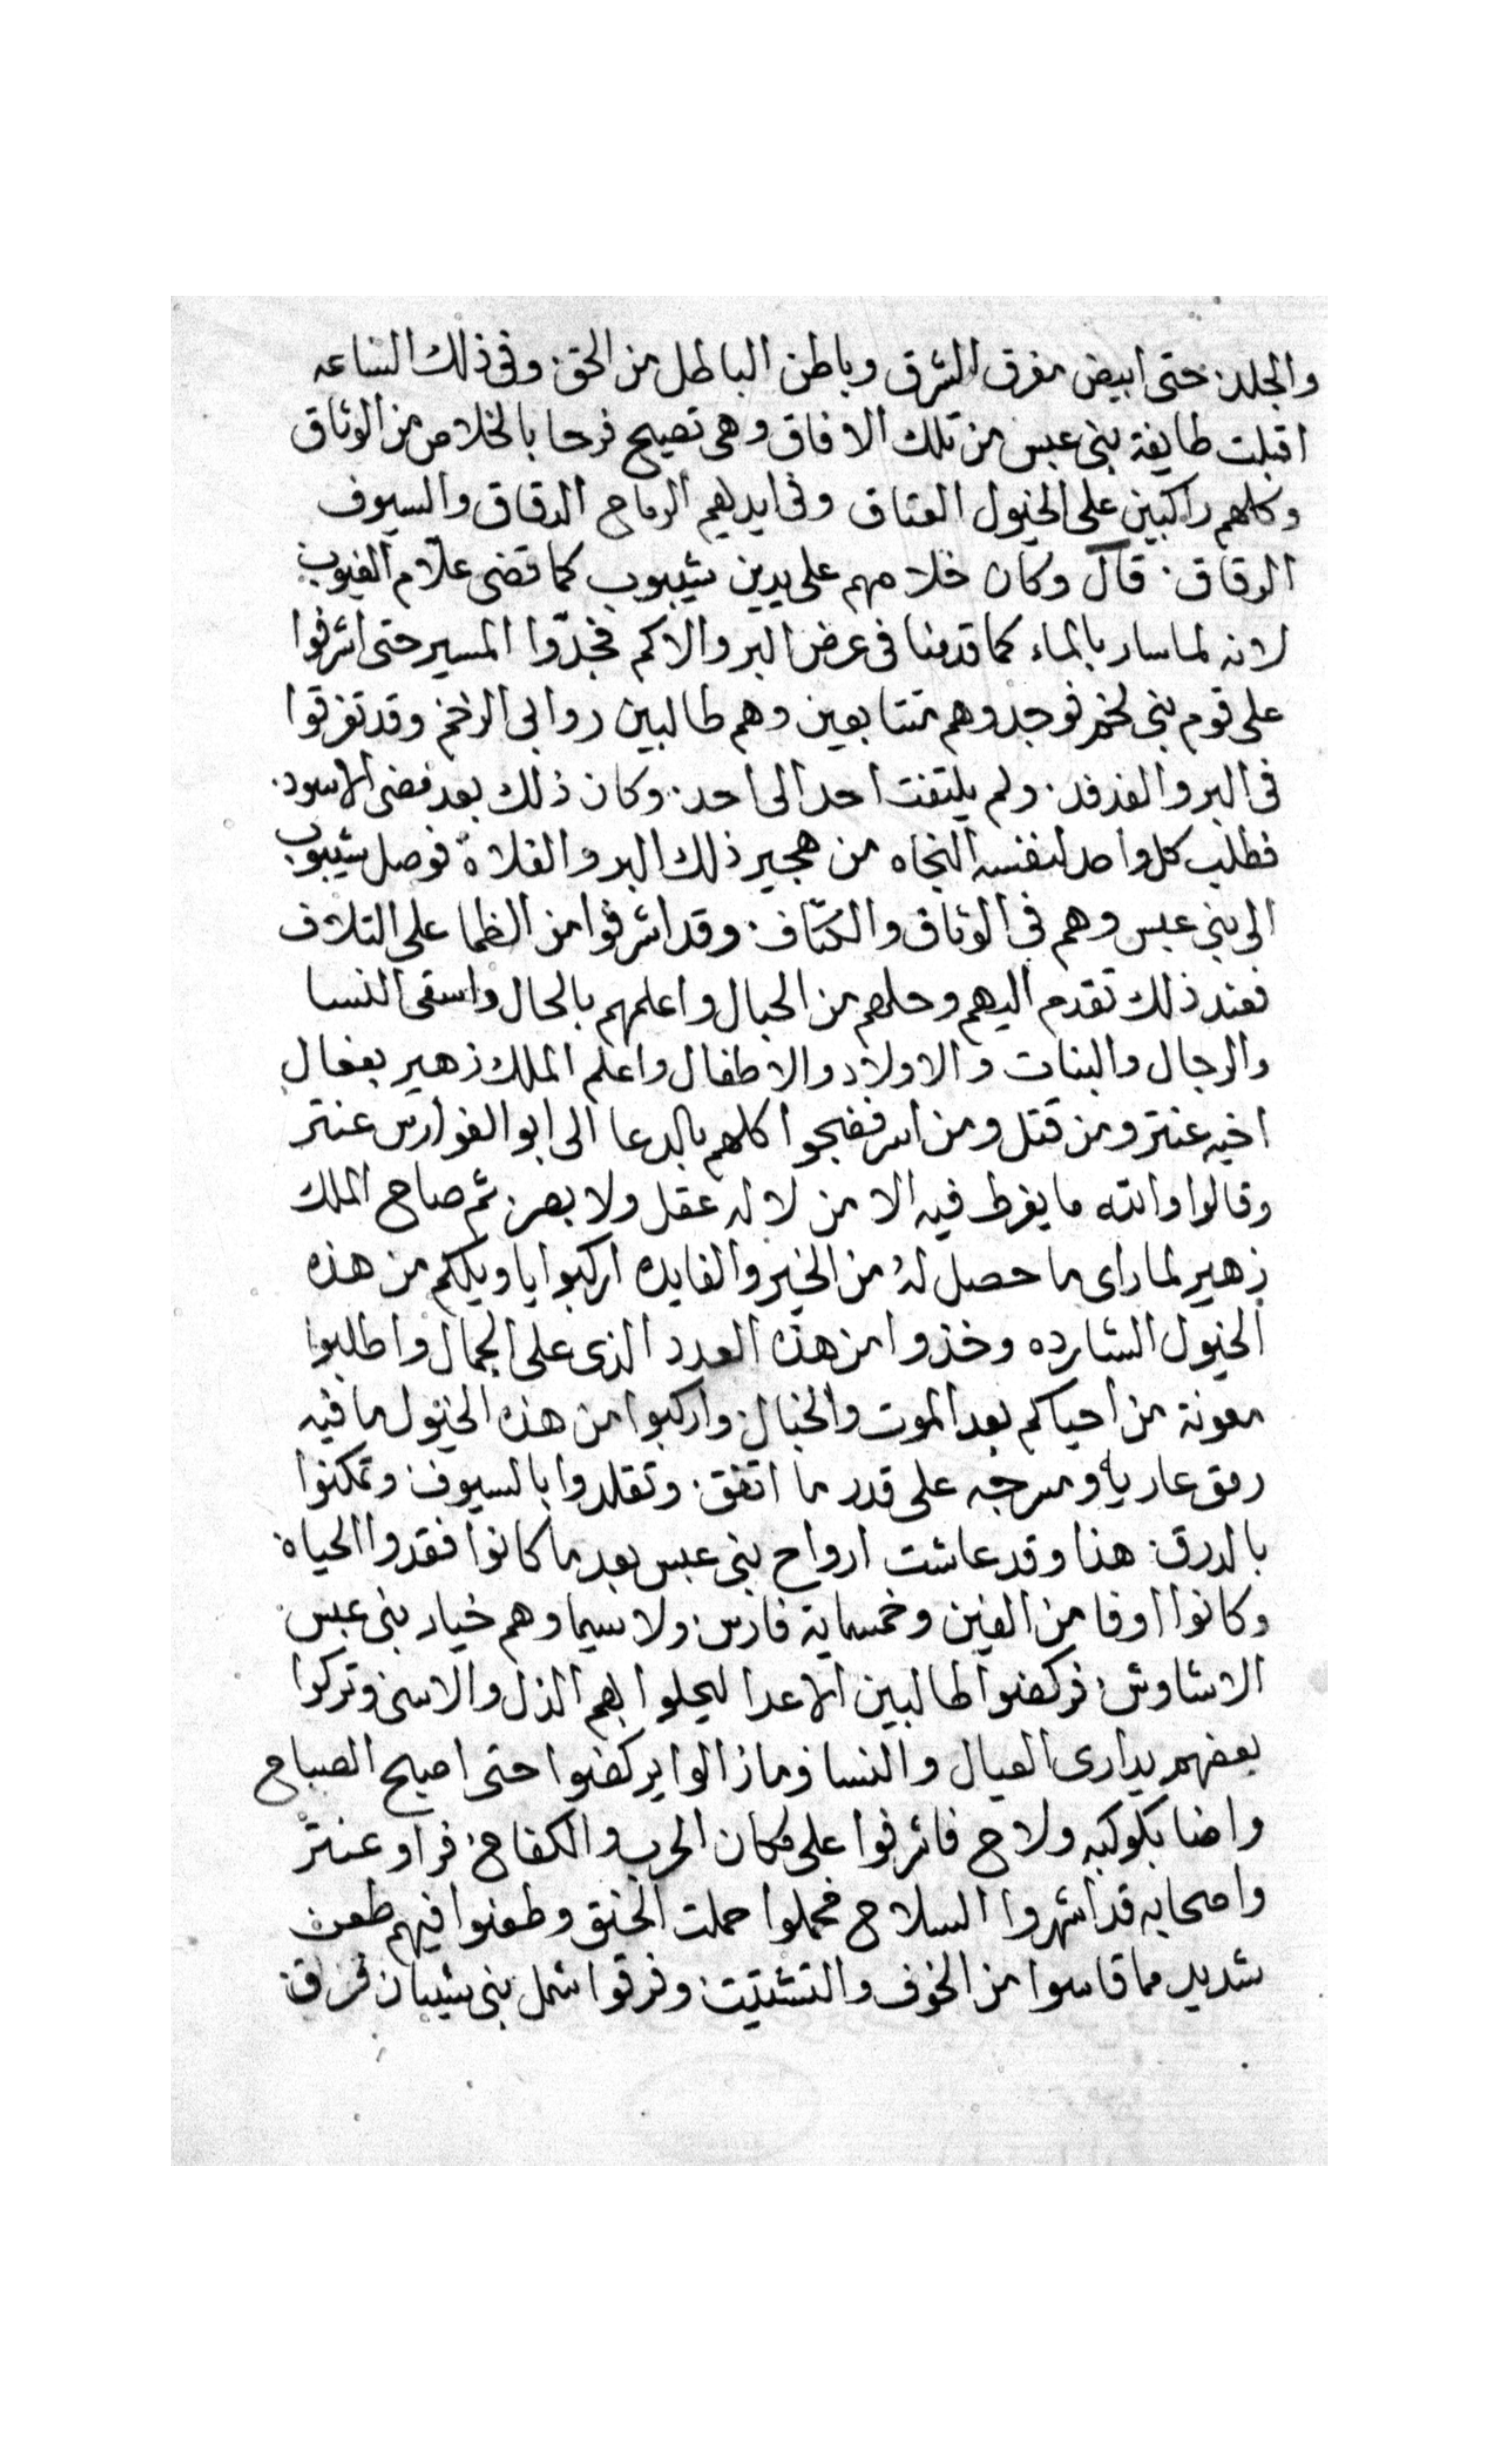 والجلد. حتى ابيض مفرق الشرق وباطن الباطل من الحق. وفى ذلك الساعه
اقبلت طايفة بنى عبس من تلك الافاق وهى تصيح فرحا بالخلاص من الوثاق
وكلهم راكبين على الخيول العتاق وفى ايديهم الرماح الدقاق والسيوف
الرقاق. قال وكان خلاصهم على يدين شيبوب كما قضى علّام الغيوب
لانه لما سار بالماء كما قدمنا فى عرض البر والاكم فجدّوا المسير حتى اشرفوا
على قوم بنى لخم فوجدوهم متتابعين وهم طالبين روابى الرخم وقد تفرقوا
فى البر والفدفد. ولم يلتفت احد الى احد. وكان ذلك بعد مضى الاسود.
فطلب كل واحد لنفسه النجاه من هجير ذلك البر والفلاة فوصل شيبوب
الى بنى عبس وهم فى الوثاق والكتّاف. وقد اشرفوا من الظما على التلاف
فعند ذلك تقدم اليهم وحلهم من الحبال واعلمهم بالحال واسقى النسا
والرجال والبنات والاولاد والاطفال واعلم الملك زهير بفعال
اخيه عنتر ومن قتل ومن اسر فضجوا كلهم بالدعا الى ابو الفوارس عنتر
وقالوا والله ما يفرط فيه الا من لا له عقل ولا بصر. ثم صاح الملك
زهير لما راى ما حصل لهُ من الخير والفايده اركبوا يا ويلكم من هذه
الخيول الشارده وخذوا من هذه العدد الذى على الجمال واطلبوا
معونة من احياكم بعد الموت والخبال. واركبوا من هذه الخيول ما فيه
رمق عاريا ومسرجه على قدر ما اتفق. وتقلدوا بالسيوف وتمكنوا
بالدرق. هذا وقد عاشت ارواح بنى عبس بعد ما كانوا فقدوا الحياة
وكانوا اوفا من الفين وخمسماية فارس. ولا سيما وهم خيار بنى عبس
الاشاوش. فركضوا طالبين الاعدا ليحلوا بهم الذل والاسى وتركوا
بعضهم يدارى العيال والنسا وما زالوا يركضوا حتى اصبح الصباح
واضا بكوكبه ولاح فاشرفوا على مكان الحرب والكفاح. فراو عنتر
واصحابه قد اشهروا السلاح فحملوا حملت الحنق وطعنوا فيهم طعن
شديد مما قاسوا من الخوف والتشتيت. وفرقوا شمل بنى شيبان فرق.